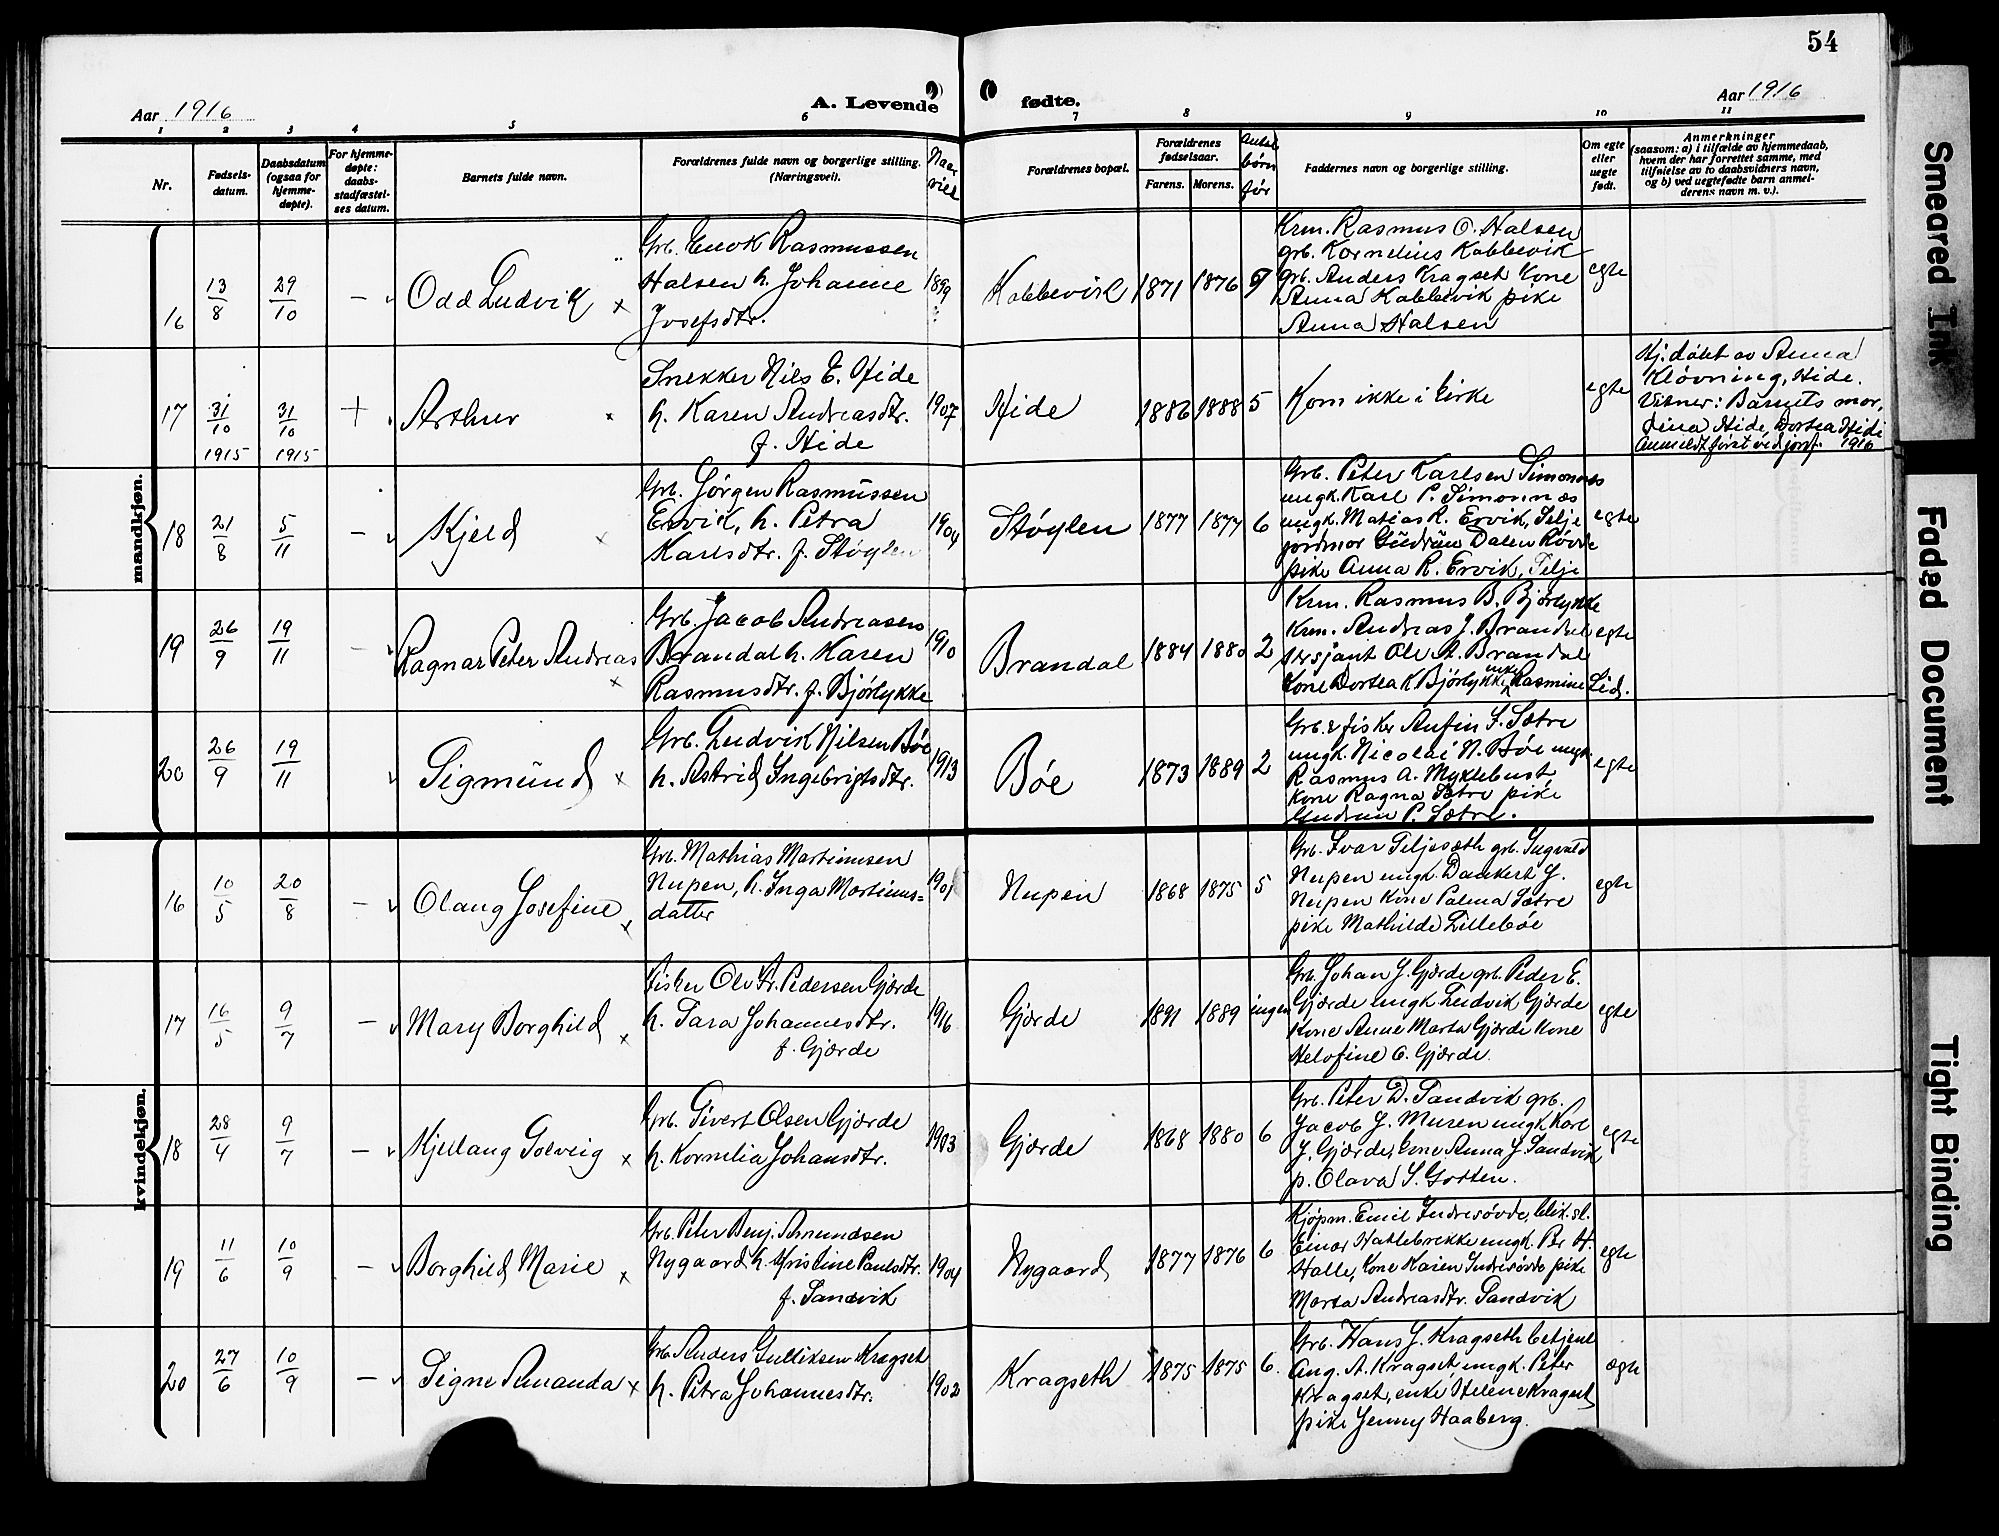 54
Aar 1916
A. Levende fødte.
Aar 1916
1 2 3 4 5 6 7 8 9 10 11
Nr.
Fødsels-
datum.
Daabsdatum
(ogsaa for
hjemme-
døpte).
For hjemme-
døpte:
daabs-
stadfæstel-
ses datum.
Barnets fulde navn.
Forældrenes fulde navn og borgerlige stilling.
(Næringsvei).
Naar
viel
Forældrenes bopæl.
Forældrenes
fødselsaar.
Farens. Morens.
Antal
børn
før
Faddernes navn og borgerlige stilling.
Om egte
eller
uegte
født.
Anmerkninger
(saasom: a) i tilfælde av hjemmedaab,
hvem der har forrettet samme, med
tilføielse av to daabsvidners navn,
og b) ved uegtefødte barn anmel-
derens navn m. v.).
mandkjøn.
16 13/8 29/10 — Odd Ludvik x
Grb. Enok Rasmussen
Halsen h. Johanne
Josefsdtr.
1899
Kobbevik 1871 1876
Krm. Rasmus O. Halsen
grb. Kornelius Kobbevik
grb. Anders Kragset kone
Anna Kobbevik pike
Anna Halsen
egte
17 31/10 1915 31/10 1915 + Arthur x
Snekker Nils E. Hide
h. Karen Andreasdtr.
f. Hide
1907
Hide 1886 1888 5
Kom ikke i kirke
egte
Hj.døbt av Anna
Kløvning, Hide.
Vitner: Barnets mor,
Lina Hide, Dortea Hide
Anmeldt først ved jonsf. 1916
18 21/8 5/11 — Kjeld x
Grb. Jørgen Rasmussen
Ervik, h. Petra
Karlsdtr. f. Støylen
1904
Støylen 1877 1877 6
Grb. Peter Karlsen Simonnes
ungk. Karl P. Simonnæs
ungk. Matias R. Ervik, Selje
jordmor Gudrun Dalen Røvde
pike Anna R. Ervik, Selje
egte
19 26/9 19/11 — Ragnar Peter Andreas x
Grb. Jacob Andreasen
Brandal h. Karen
Rasmusdtr. f. Bjørlykke
1910
Brandal 1884 1880 2
Krm. Rasmus B. Bjørlykke
Krm. Andreas J. Brandal
sersjant Ole A. Brandal
kone Dortea K Bjørlykke, enke Rasmine Eid.
egte
20 26/9 19/11 Sigmund x
Grb. Ludvik Nilsen Bøe
h. Astrid Ingebrigtsdtr.
1913
Bøe 1873 1889 2
Grb & fisker Anfin S. Sætre
ungk. Nicolai N. Bøe ungk.
Rasmus A. Myklebust
kone Ragna Sætre pike
Gudrun P. Sætre.
egte
kvindekjøn.
16 10/5 20/8 — Olaug Josefine x
Grb. Mathias Martinusen
Nupen, h. Inga Martinus=
datter
Nupen 1868 1875 5
Grb. Ivar Siljesæth grb. Ingvald
Nupen ungk. Dankert J.
Nupen kone Palma Sætre
pike Mathilde Lillebøe
egte
17 16/5 9/7 — Mary Borghild x
Fisker Ole Fr. Pedersen Gjærde
h. Sara Johannesdtr.
f. Gjærde
1916
Gjærde 1891 1889 ingen
Grb. Johan J. Gjærde grb. Peder E.
Gjærde ungk Ludvik Gjærde
kone Anne Marta Gjærde kone
Helofine O. Gjærde.
egte
18 28/4 9/7 — Kjellaug Solveig x
Grb. Sivert Olsen Gjærde
h. Kornelia Johansdtr.
1903
Gjærde 1868 1880 6
Grb. Peter D. Sandvik grb.
Jacob J. Muren ungk Kare
J. Gjærde, kone Anna J. Sandvik
p. Olava S. Gotten.
egte
19 11/6 10/9 — Borghild Marie x
Grb. Peter Benj. Amundsen
Nygaard h. Kristine Paulsdtr.
f. Sandvik
1904
Nygaard 1877 1876 6
Kjøpm. Emil Indresøvde, blik.sl.
Einar Hattebrekke ungk. Per H.
Halle, kone Karen Indresøvde pike
Marta Andreasdtr. Sandvik
egte
20 27/6 10/9 — Signe Amanda x
Grb. Anders Gulliksen Kragset
h. Petra Johannesdtr.
1902
Kragseth 1875 1875 6.
Grb. Hans J. Kragseth betjent
Aug. A. Kragset, ungk. Peter
Kragset, enke Helene Kragset
pike Jenny Haaberg.
ægte
Smeared Ink
Faded Document
Tight Binding